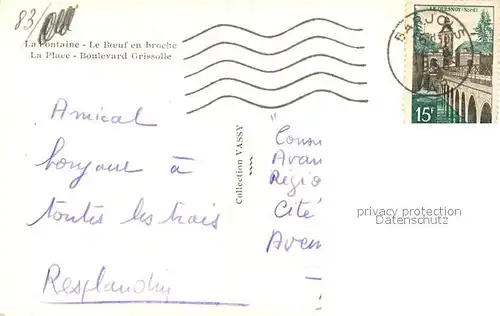 83/
La Fontaine - Le Bœuf en broche
La Place - Boulevard Grissolle
BARJOLS
LE QUESNOY (NORD)
15F
Amical
bonjour à
toutes les trois
Resplandin
Collection VASSY
Avan
Régio
Cité
Aven
privacy protection
Datenschutz